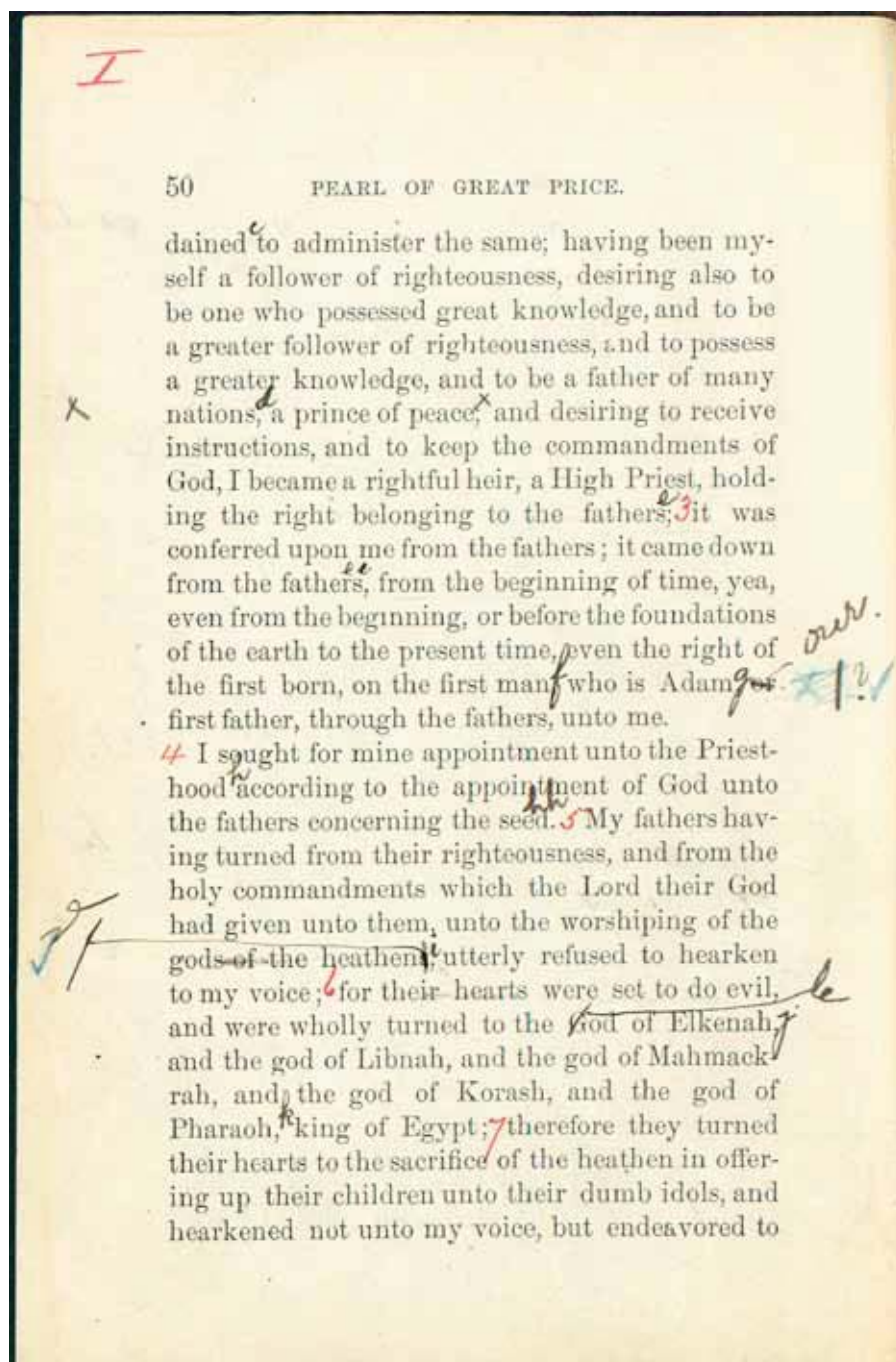 I
50 PEARL OF GREAT PRICE.
dained c to administer the same; having been my-
self a follower of righteousness, desiring also to
be one who possessed great knowledge, and to be
a greater follower of righteousness, and to possess
a greater knowledge, and to be a father of many
x nations, d a prince of peace, x and desiring to receive
instructions, and to keep the commandments of
God, I became a rightful heir, a High Priest, hold-
ing the right belonging to the fathers; e 3 it was
conferred upon me from the fathers; it came down
from the fathers, ee from the beginning of time, yea,
even from the beginning, or before the foundations
of the earth to the present time, even the right of over.
the first born, on the first man f who is Adam g or 1?
first father, through the fathers, unto me.
4 I sought for mine appointment unto the Priest-
hood h according to the appointment of God unto
the fathers concerning the seed. hh 5 My fathers hav-
ing turned from their righteousness, and from the
holy commandments which the Lord their God
had given unto them, unto the worshiping of the
gods of the heathens, i utterly refused to hearken
to my voice; 6 for their hearts were set to do evil,
and were wholly turned to the God of Elkenah, j lc
and the god of Libnah, and the god of Mahmack-
rah, and the god of Korash, and the god of
Pharaoh, k king of Egypt; 7 therefore they turned
their hearts to the sacrifice of the heathen in offer-
ing up their children unto their dumb idols, and
hearkened not unto my voice, but endeavored to